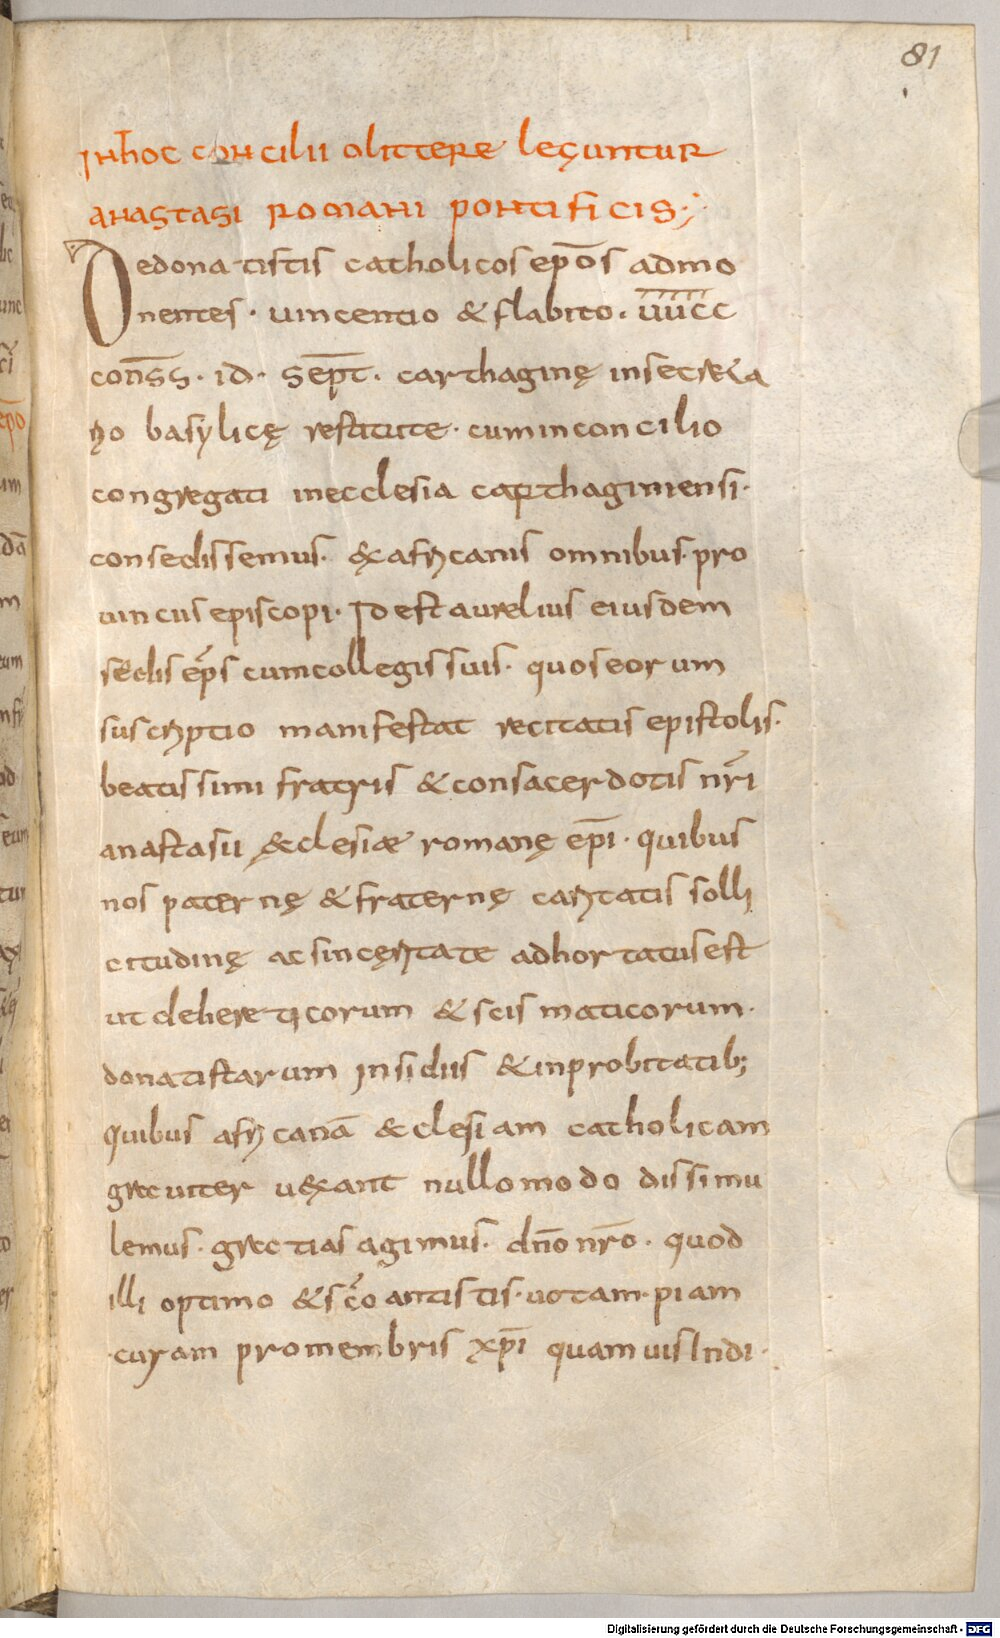 81
INhOC CONCILII OLITTERE LEGUNTUR
ANASTASI ROMANI PONTIFICIS;
Dedonatistis catholicos ep̄os admo
nentes · uincentio & flabito · ūūc̄c̄
con̄ss · id · Sep̄t · carthaginę insecreta
rio basylicę restitute · cuminconcilio
congregati inecclesia carthaginiensi ·
consedissemus · exafricanis omnibus · pro
uinciis episcopi · Idest aurelius eiusdem
sedis ep̄s cumcollegis suis · quoseorum
suscriptio manifestat recitatis epistolis ·
beatissimi fratris & consacerdotis nr̄i
anastasii &clesiæ romanę ep̄i · quibus
nos paternę & fraternę caritatis solli
citudinę ac sincęritate adhortatusest
ut dehereticorum & scismaticorum ·
donatistarum insidiis & inprobitatib;
Quibus africanā &clesiam catholicam
grauiter uexant nullomodo dissimu
lemus · gratias agimus · dn̄o nr̄o · quod
illi optimo & sc̄o antistis · uotam · piam
curam promembris xp̄i quamuis Indi ·
Digitalisierung gefördert durch die Deutsche Forschungsgemeinschaft - DFG